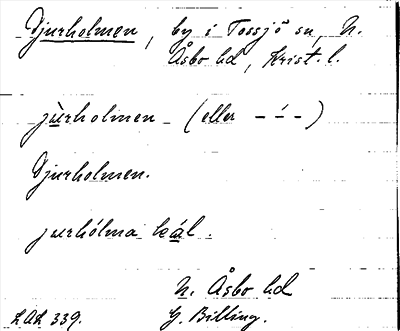 Djurholmen, by i Tossjö sn, N.
Åsbo hd, Krist. l.
jùrholmen (eller - ́ -)
Djurholmen.
jurhólma kál.
N. Åsbo hd
LAL 339. G. Billing.